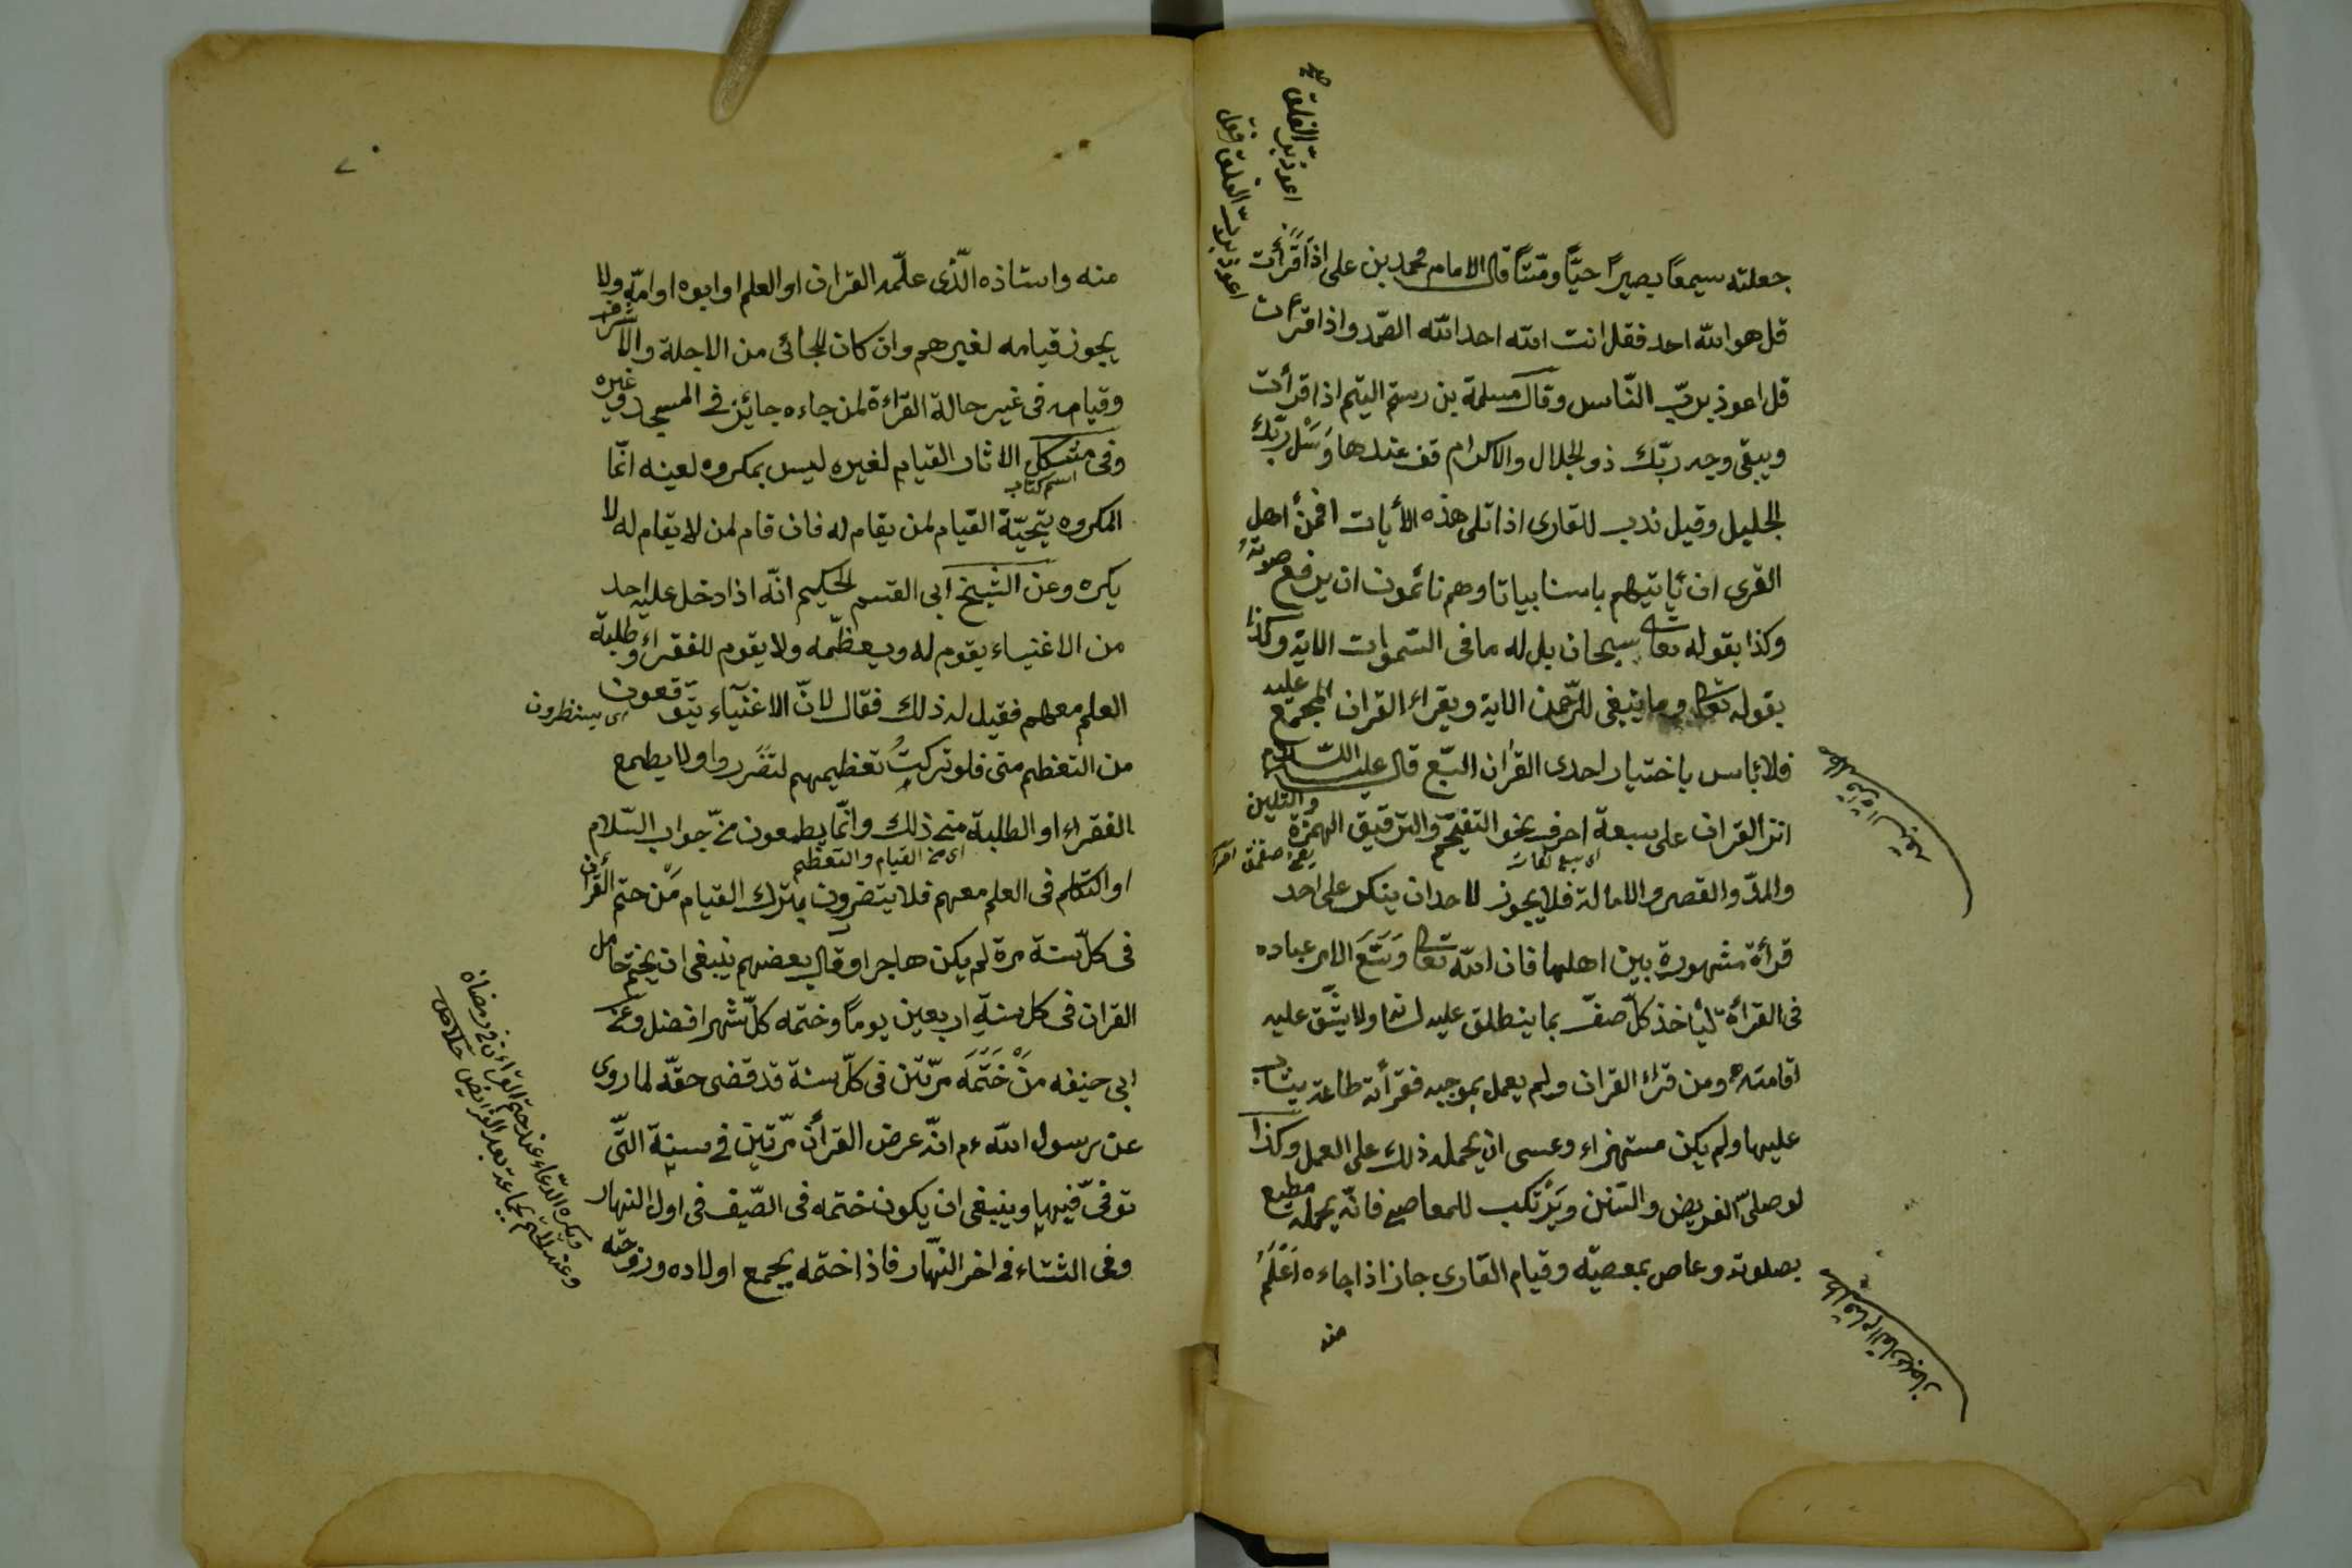 جعلته سميعًا بصيرًا حيًّا وميّتًا قال الامام محمد بن على اذا قرأت
قل هو الله احد فقل انت الله احد الله الصّمد واذا قرأت
قل اعوذ بربّ النّاس وقال مسلمة بن رستم اليتم اذا قرأت
ويبقى وجه ربّك ذو الجلال والاكرام قف عندها وَسْل ربّك
الجليل وقيل ندب للقارى اذا تلى هذه الأيات افمن أهل
القرى ان يأتيهم باسنا بياتا وهم نائمون ان يرفع صوته
وكذا بقوله تعا سبحان بل له ما فى السّموات الاية وكذا
بقوله تعا وما ينبغى للرّحمن الاية ويقراء القران المجمع عليه
فلا بأس باختيار احدى القران السّبع قال عليه السّلام
انزل القران على سبعة احرف نحو التفخيم والترقيق الهمزة والتليين
اى سبع لغات
والمدّ والقصر والامالة فلا يجوز لاحد ان ينكر على احد
قرأة مشهورة بين اهلها فان الله تعا وَسَّعَ الامر عباده
فى القرأة ليأخذ كلّ صنف بما ينطلق عليه لسانه ولا يشّق عليه
اقامته ومن قراء القران ولم يعمل بموجبه فقرأته طاعة يثاب
عليها ولم يكن مستهزاء وعسى ان يحمله ذلك على العمل وكذا
لو صلّى الفريض والسّنن ويَرْتكب للمعاصى فانّه يحمله مطيع
بصلوته وعاص بمعصيّه وقيام القارى جاز اذا جاءه اَعْلَمُ
منه
اعوذ بربّ الفلق
اعوذ بربّ الفلق فقل
منه واستاذه الّذى علّمه القران او العلم او ابوه او امّه ولا
يجوز قيامه لغيرهم وان كان للجائى من الاجلة والاشراف
وقيامه فى غير حالة القرّاءة لمن جاءه جايئز فى المسجد وغيره
وفى مشكل الاثار القيام لغيره ليس بمكروه لعينه انّما
اسم كتاب
المكروه يتحيّة القيام لمن يقام له فان قام لمن لا يقام له لا
يكره وعن الشيخ ابى القسم الحكيم انّه اذا دخل عليه احد
من الاغنياء يقوم له ويعظّمه ولا يقوم للفقراء وطلبة
العلم معهم فقيل له ذلك فقال لانّ الاغنياء يتوقعون
اى ينتظرون
من التعظم منى فلو تركت تعظيمهم لتضّرروا ولا يطمع
الفقراء او الطلبة منى ذلك وانّما يطمعون منّى جواب السّلام
اى من القيام والتعظم
او التكلم فى العلم معهم فلا يتضرون بترك القيام مَن ختم القرأن
فى كلّ سنة مرة لم يكن هاجرا وقال بعضهم ينبغى ان يختم حامل
القران فى كل سنة اربعين يومًا وختمه كلّ شهر افضل وعن
ابى حنيفه مَنْ خَتَمَه مرّتين فى كلّ سنة قد قضى حقّه لما روى
عن رسول الله عم انّه عرض القرأن مرّتين فى سنة التّى
توفىّ فيها وينبغى ان يكون ختمه فى الصّيف فى اول النهار
وفى الشتاء فى اخر النّهار فاذا ختمه يجمع اولاده وزوجته
ويكره الدّعاء عند ختم القرأن فى رمضان